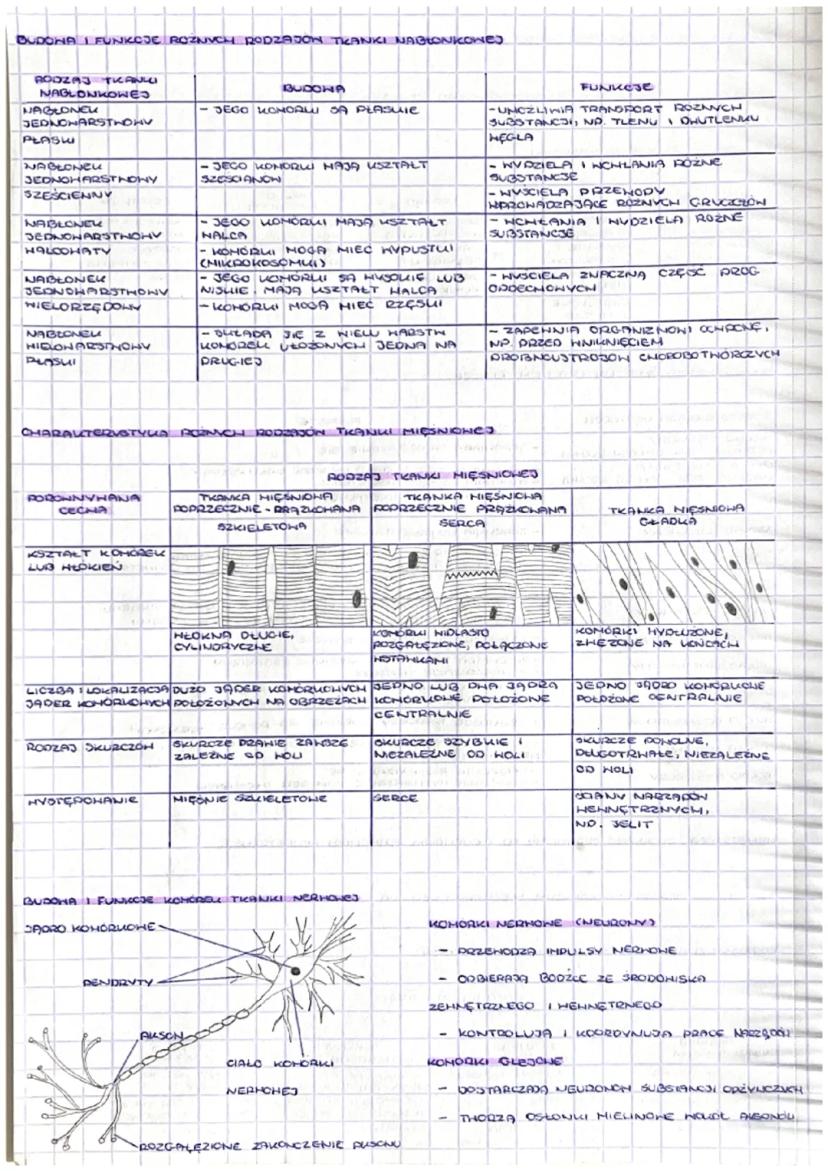 BUDOWA I FUNKCJE RÓŻNYCH RODZAJÓW TKANKI NABŁONKOWEJ
RODZAJ TKANKI
NABŁONKOWEJ
BUDOWA
FUNKCJE
NABŁONEK
JEDNOWARSTWOWY
PŁASKI
- JEGO KOMÓRKI SĄ PŁASKIE
- UMOŻLIWIA TRANSPORT RÓŻNYCH
SUBSTANCJI, NP. TLENU I DWUTLENKU
WĘGLA
NABŁONEK
JEDNOWARSTWOWY
SZEŚCIENNY
- JEGO KOMÓRKI MAJĄ KSZTAŁT
SZEŚCIANÓW
- WYDZIELA I WCHŁANIA RÓŻNE
SUBSTANCJE
- WYŚCIELA PRZEWODY
WPROWADZAJĄCE RÓŻNYCH GRUCZOŁÓW
NABŁONEK
JEDNOWARSTWOWY
WALCOWATY
- JEGO KOMÓRKI MAJĄ KSZTAŁT
WALCA
- KOMÓRKI MOGĄ MIEĆ WYPUSTKI
(MIKROKOSOMKI)
- WCHŁANIA I WYDZIELA RÓŻNE
SUBSTANCJE
NABŁONEK
JEDNOWARSTWOWY
WIELORZĘDOWY
- JEGO KOMÓRKI SĄ WYSOKIE LUB
NISKIE, MAJĄ KSZTAŁT WALCA
- KOMÓRKI MOGĄ MIEĆ RZĘSKI
- WYŚCIELA ZNACZNĄ CZĘŚĆ DRÓG
ODDECHOWYCH
NABŁONEK
WIELOWARSTWOWY
PŁASKI
- SKŁADA SIĘ Z WIELU WARSTW
KOMÓREK UŁOŻONYCH JEDNA NA
DRUGIEJ
- ZAPEWNIA ORGANIZMOWI OCHRONĘ,
NP. PRZED WNIKNIĘCIEM
DROBNOUSTROJÓW CHOROBOTWÓRCZYCH
CHARAKTERYSTYKA RÓŻNYCH RODZAJÓW TKANKI MIĘŚNIOWEJ
RODZAJ TKANKI MIĘŚNIOWEJ
PORÓWNYWANA
CECHA
TKANKA MIĘŚNIOWA
POPRZECZNIE - PRĄŻKOWANA
SZKIELETOWA
TKANKA MIĘŚNIOWA
POPRZECZNIE PRĄŻKOWANA
SERCA
TKANKA MIĘŚNIOWA
GŁADKA
KSZTAŁT KOMÓREK
LUB WŁÓKIEN
WŁÓKNA DŁUGIE,
CYLINDRYCZNE
KOMÓRKI WIDLASTO
ROZGAŁĘZIONE, POŁĄCZONE
WSTAWKAMI
KOMÓRKI WYDŁUŻONE,
ZWĘŻONE NA KOŃCACH
LICZBA I LOKALIZACJA
JĄDER KOMÓRKOWYCH
DUŻO JĄDER KOMÓRKOWYCH
POŁOŻONYCH NA OBRZEŻACH
JEDNO LUB DWA JĄDRA
KOMÓRKOWE POŁOŻONE
CENTRALNIE
JEDNO JĄDRO KOMÓRKOWE
POŁOŻONE CENTRALNIE
RODZAJ SKURCZÓW
SKURCZE PRAWIE ZAWSZE
ZALEŻNE OD WOLI
SKURCZE SZYBKIE I
NIEZALEŻNE OD WOLI
SKURCZE POWOLNE,
DŁUGOTRWAŁE, NIEZALEŻNE
OD WOLI
WYSTĘPOWANIE
MIĘŚNIE SZKIELETOWE
SERCE
ŚCIANY NARZĄDÓW
WEWNĘTRZNYCH,
NP. JELIT
BUDOWA I FUNKCJE KOMÓREK TKANKI NERWOWEJ
JĄDRO KOMÓRKOWE
DENDRYTY
AKSON
CIAŁO KOMÓRKI
NERWOWEJ
ROZGAŁĘZIONE ZAKOŃCZENIE AKSONU
KOMÓRKI NERWOWE (NEURONY)
- PRZEWODZĄ IMPULSY NERWOWE
- ODBIERAJĄ BODŹCE ZE ŚRODOWISKA
ZEWNĘTRZNEGO I WEWNĘTRNEGO
- KONTROLUJĄ I KOORDYNUJĄ PRACĘ NARZĄDÓW
KOMÓRKI GLEJOWE
- DOSTARCZAJĄ NEURONOM SUBSTANCJI ODŻYWCZYCH
- TWORZĄ OSŁONKI MIELINOWE WOKÓŁ AKSONÓW